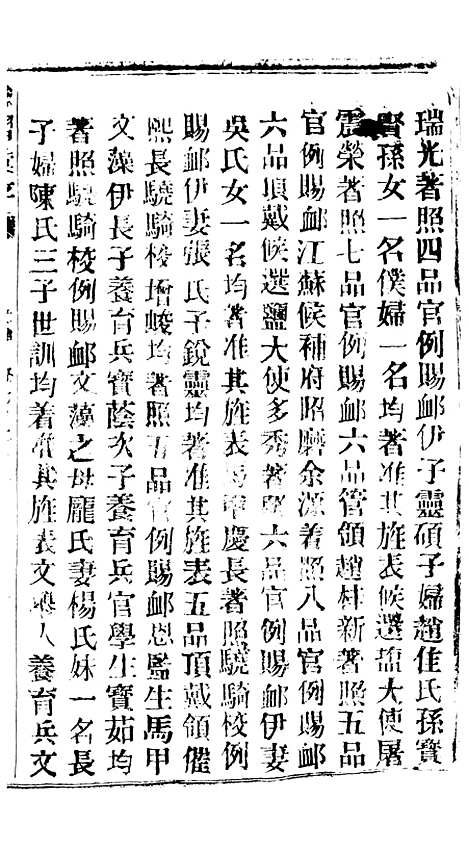 瑞光著照四品官例賜卹伊子靈碩子婦趙佳氏孫寶
賢孫女一名僕婦一名均著准其旌表候選鹽大使屠
震榮著照七品官例賜卹六品管領趙林新著照五品
官例賜卹江蘇候補府照磨余源着照八品官例賜卹
六品頂戴候選鹽大使多秀著照六品官例賜卹伊妻
吳氏女一名均著准其旌表馬甲慶長著照驍騎校例
賜卹伊妻張氏子銳靈均著准其旌表五品頂戴領催
熙長驍騎校增峻均著照五品官例賜卹恩監生馬甲
文藻伊長子養育兵寶蔭次子養育兵官學生寶茹均
著照驍騎校例賜卹文藻之母龐氏妻楊氏妹一名長
子婦陳氏三子世訓均着准其旌表文 人養育兵文